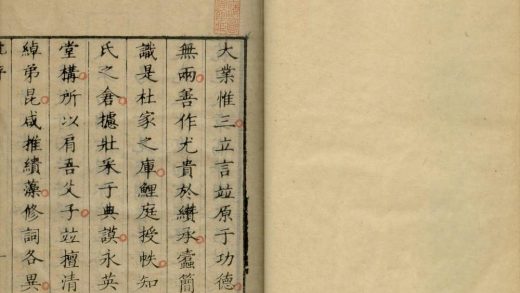 大業惟三立言竝原于功德
無兩善作尤貴於纘承蠹簡
識是杜家之庫鯉庭授帙知
氏之倉攄壯采于典謨永英
堂構所以肩吾父子竝擅清
綽弟昆咸推績藻修詞各異